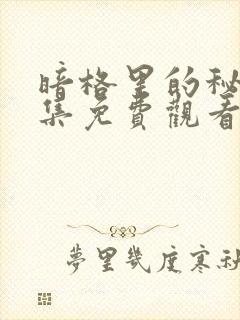 暗格里的秘
集免費觀看
夢里幾度寒秋